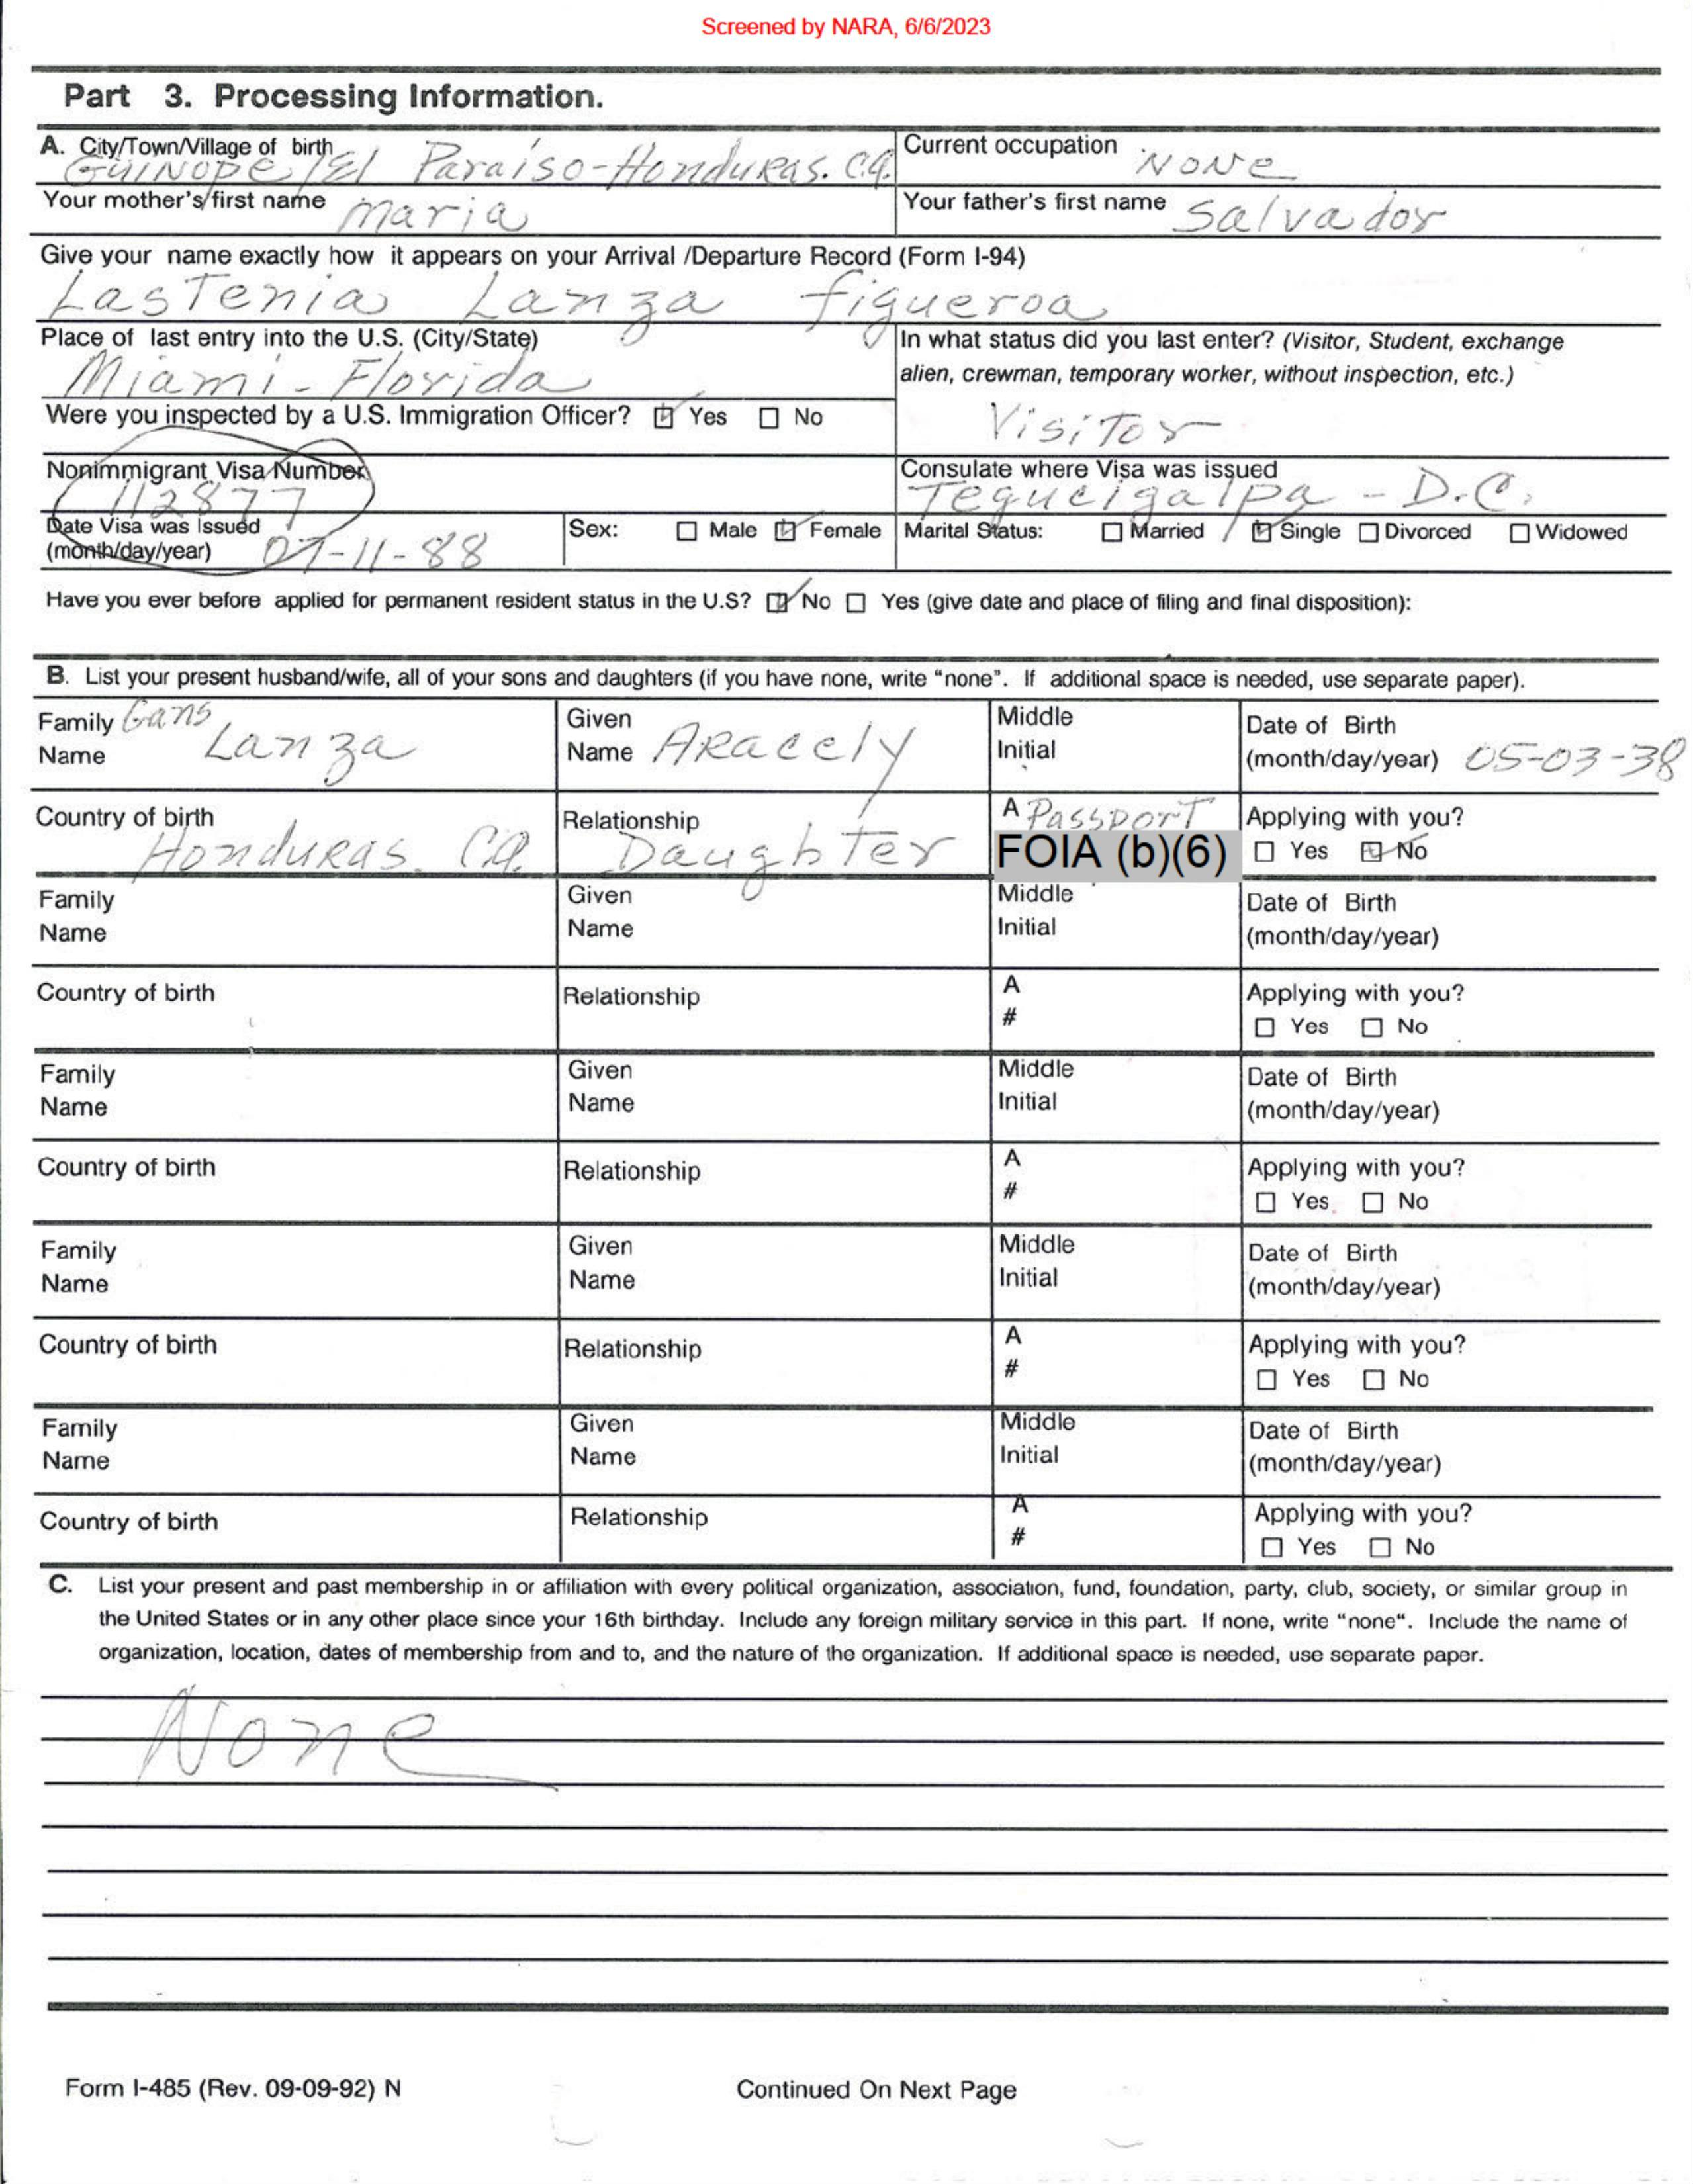 Screened by NARA, 6/6/2023
Part 3. Processing Information.
A. City/Town/Village of birth Current occupation
GUINOPE / El Paraíso-Honduras. C.A. NONE
Your mother's first name Maria Your father's first name Salvador
Give your name exactly how it appears on your Arrival /Departure Record (Form I-94)
Lastenia Lanza figueroa
Place of last entry into the U.S. (City/State) In what status did you last enter? (Visitor, Student, exchange
Miami - Florida alien, crewman, temporary worker, without inspection, etc.)
Were you inspected by a U.S. Immigration Officer? Yes No Visitor
Nonimmigrant Visa Number Consulate where Visa was issued
112877 Tegucigalpa - D.C.
Date Visa was Issued Sex: Male Female Marital Status: Married Single Divorced Widowed
(month/day/year) 07-11-88
Have you ever before applied for permanent resident status in the U.S? No Yes (give date and place of filing and final disposition):
B. List your present husband/wife, all of your sons and daughters (if you have none, write "none". If additional space is needed, use separate paper).
Family Gans Given Middle Date of Birth
Name Lanza Name Aracely Initial (month/day/year) 05-03-38
Country of birth Relationship A Passport Applying with you?
Honduras. C.A. Daughter FOIA (b)(6) Yes No
Family Given Middle Date of Birth
Name Name Initial (month/day/year)
Country of birth Relationship A Applying with you?
# Yes No
Family Given Middle Date of Birth
Name Name Initial (month/day/year)
Country of birth Relationship A Applying with you?
# Yes No
Family Given Middle Date of Birth
Name Name Initial (month/day/year)
Country of birth Relationship A Applying with you?
# Yes No
Family Given Middle Date of Birth
Name Name Initial (month/day/year)
Country of birth Relationship A Applying with you?
# Yes No
C. List your present and past membership in or affiliation with every political organization, association, fund, foundation, party, club, society, or similar group in
the United States or in any other place since your 16th birthday. Include any foreign military service in this part. If none, write "none". Include the name of
organization, location, dates of membership from and to, and the nature of the organization. If additional space is needed, use separate paper.
None
Form I-485 (Rev. 09-09-92) N Continued On Next Page